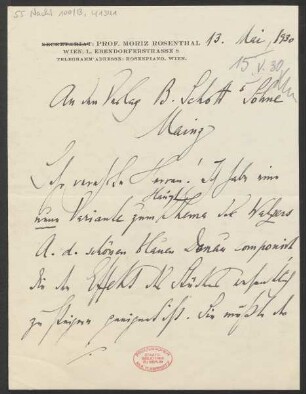 55 Nachl 100/B, 41341
SECRETARIAT: PROF. MORIZ ROSENTHAL
WIEN, I., EBENDORFERSTRASSE 8
TELEGRAMM-ADRESSE: ROSENPIANO, WIEN.
13. Mai 1930
15/V. 30
An den Verlag B. Schott's Söhne
Mainz
Sehr verehrte Herren! Ich habe eine
neue Variante zum Haupt Thema des Walzers
A. d. schönen blauen Donau componirt
die den Effekt des Stückes
zu steigern geeignet ist. Sie müßte